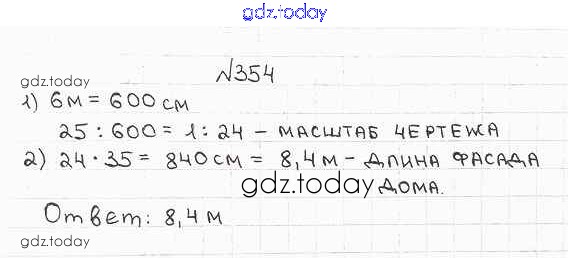 gdz.today
№354
gdz.today
1) 6м = 600 см
25 : 600 = 1 : 24 – масштаб чертежа
2) 24 · 35 = 840 см = 8,4 м – длина фасада
gdz.today дома.
Ответ: 8,4 м
gdz.today